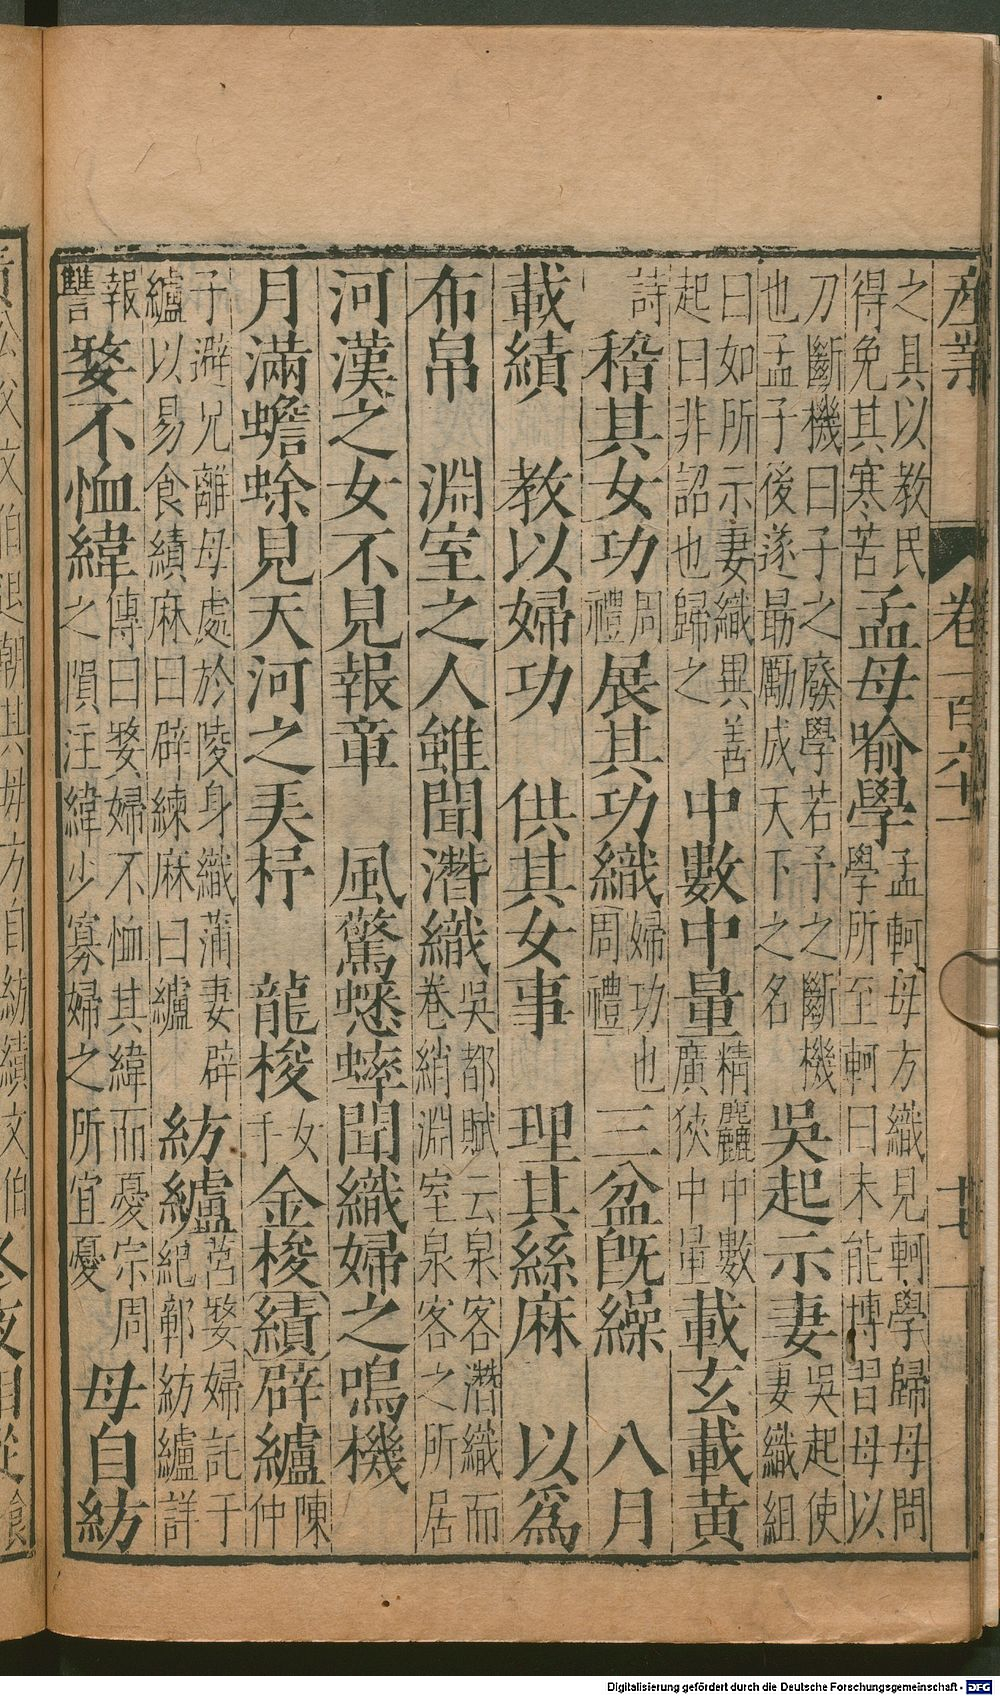 産業 卷一百六十一 十七
之具以教民
得免其寒苦
孟母喻學
孟軻母方織見軻學歸母問
學所至軻曰未能博習母以
刀斷機曰子之廢學若予之斷機
也孟子後遂勗勵成天下之名
吳起示妻
吳起使
妻織組
曰如所示妻織異善
起曰非詔也歸之
中數中量
精麤中數
廣狹中量
載玄載黃
詩
稽其女功
周
禮
展其功織
婦功也
周禮
三盆旣繅 八月
載績 教以婦功 供其女事 理其絲麻 以爲
布帛 淵室之人雖聞潛織
吳都賦云泉客潛織而
卷綃淵室泉客之所居
河漢之女不見報章 風驚蟋蟀聞織婦之鳴機
月滿蟾蜍見天河之美杼 龍梭
女
手
金梭
績
辟纑
陳
仲
子避兄離母處於陵身織蒲妻辟
纑以易食績麻曰辟練麻曰纑
紡纑
莒嫠婦託于
紀鄣紡纑詳
報
讐
嫠不恤緯
傳曰嫠婦不恤其緯而憂宗周
之隕注緯少寡婦之所宜憂
母自紡
公父文伯退朝其母方自紡績文伯
冬夜相從
Digitalisierung gefördert durch die Deutsche Forschungsgemeinschaft - DFG